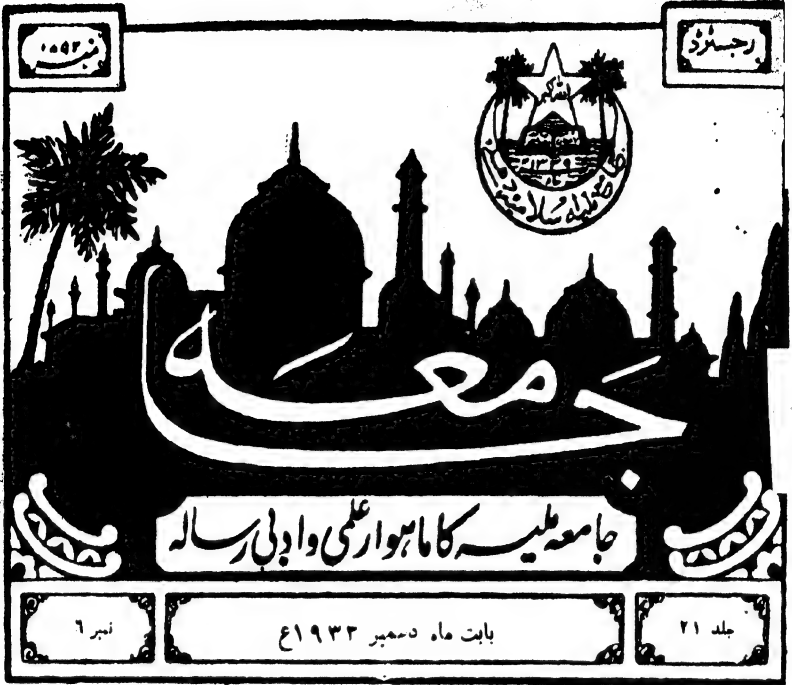 رجسٹرڈ
نمبر ۱۵۹۲
اللہ اکبر
جامعہ ملیہ اسلامیہ
جامعہ
جامعہ ملیہ کا ماہوار علمی و ادبی رسالہ
جلد ۲۱
بابت ماہ دسمبر ۱۹۳۳ع
نمبر ۶